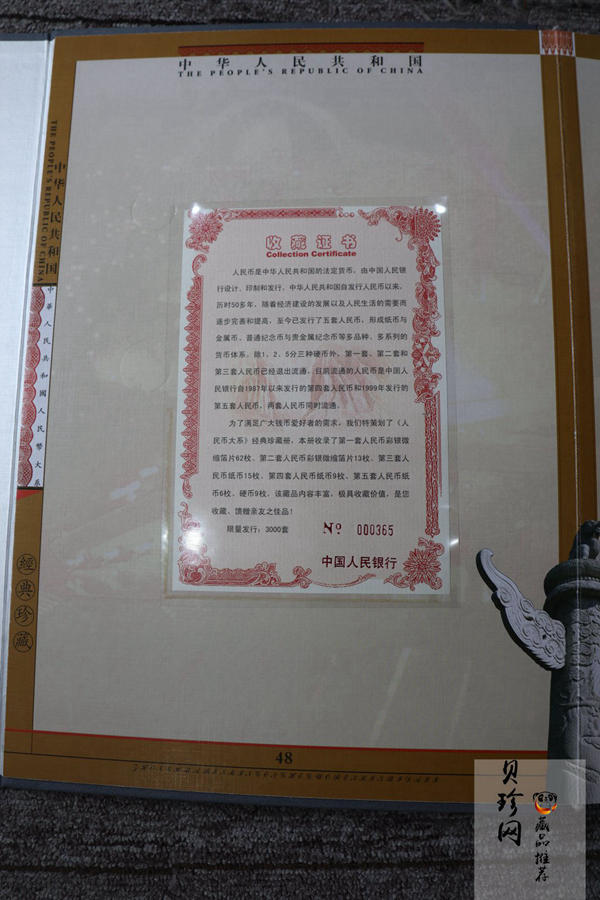 中华人民共和国
THE PEOPLE'S REPUBLIC OF CHINA
THE PEOPLE'S REPUBLIC OF CHINA
中华人民共和国
中華人民共和國人民幣大系
經典珍藏
收藏证书
Collection Certificate
人民币是中华人民共和国的法定货币，由中国人民银
行设计、印制和发行，中华人民共和国自发行人民币以来，
历时50多年，随着经济建设的发展以及人民生活的需要而
逐步完善和提高，至今已发行了五套人民币，形成纸币与
金属币、普通纪念币与贵金属纪念币等多品种、多系列的
货币体系。除1、2、5分三种硬币外，第一套、第二套和
第三套人民币已经退出流通，目前流通的人民币是中国人
民银行自1987年以来发行的第四套人民币和1999年发行的
第五套人民币，两套人民币同时流通。
为了满足广大钱币爱好者的需求，我们特策划了《人
民币大系》经典珍藏册，本册收录了第一套人民币彩银微
缩箔片62枚、第二套人民币彩银微缩箔片13枚、第三套人
民币纸币15枚、第四套人民币纸币9枚、第五套人民币纸
币6枚、硬币9枚，该藏品内容丰富，极具收藏价值，是您
收藏、馈赠亲友之佳品！
限量发行：3000套 Nº 000365
中国人民银行
48
贝珍网
藏品推荐